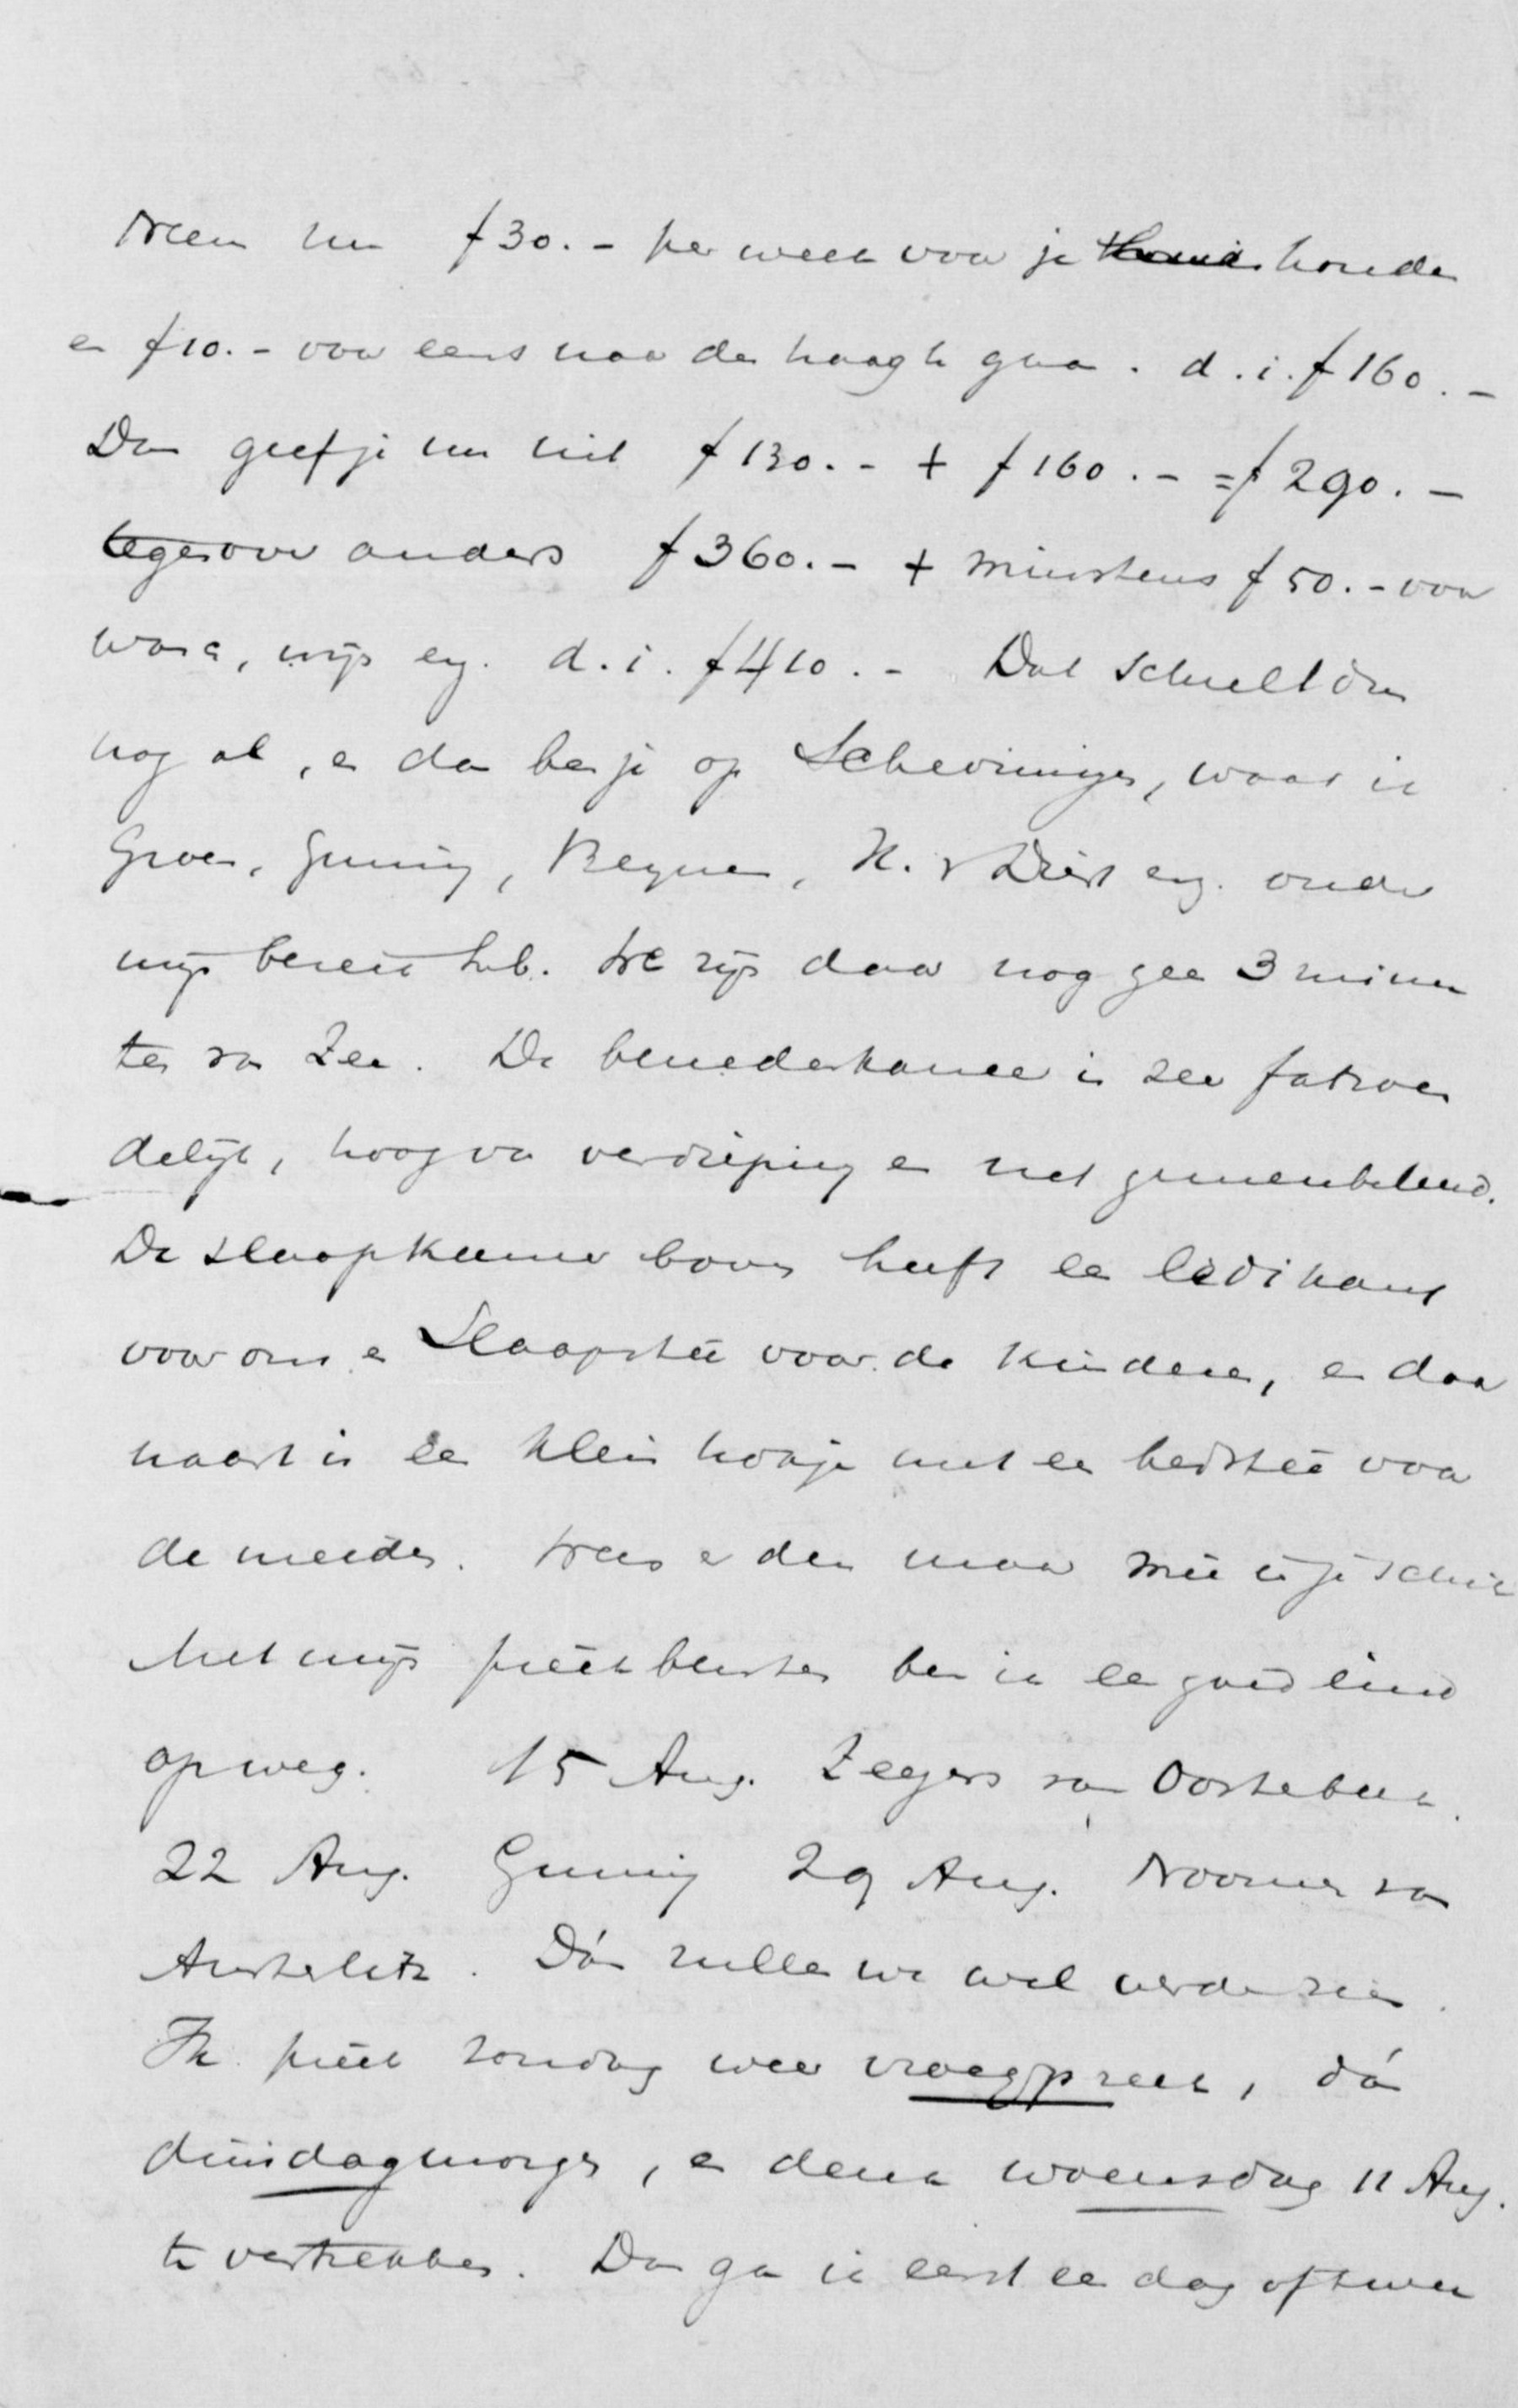 Neem nu f 30.- per week voor je houden
en f 10.- voor eens naar den haag te gaan. d.i. f 160.-
Dan geef je nu uit f 130.- + f 160.- = f 290.-
tegenover anders f 360.- + minstens f 50.- voor
wasch, wijn eng. d.i. f 410.- Dat scheelt dus
nog al, en dan ben je op Scheveningen, waar ik
Groen, Gunning, Beynen, H. v Driest eng. onder
mijn bereik heb. We zijn daar nog geen 3 minu
ten van Zee. De benedenkamer is zeer fatsoen
delijk, hoog van verdieping en net gemeubeleerd.
De slaapkamer boven heeft een ledikant
voor ons en Slaapstêe voor de kinderen, en daar
naast is een klein hokje met een bedstêe voor
de meiden. Wees er dan maar mêe in je schik
Met mijn prêekbeurten ben ik een goed eind
op weg. 15 Aug. Zegers van Oosterbeek.
22 Aug. Gunning 29 Aug. van
Austerlitz. Dán zullen we wel verder zien.
Ik prêek zondag weer vroegpreek, dán
dinsdagmorgen, en denk woensdag 11 Aug.
te vertrekken. Dan ga ik eerst een dag of twee